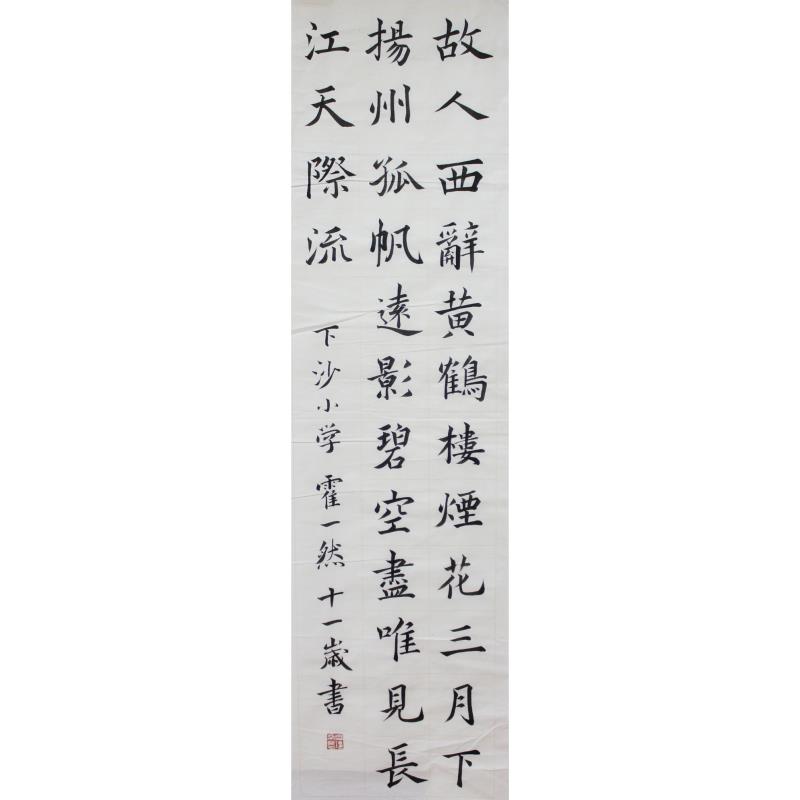 故人西辭黃鶴樓煙花三月下
揚州孤帆遠影碧空盡唯見長
江天際流
下沙小学 霍一然 十一歲書